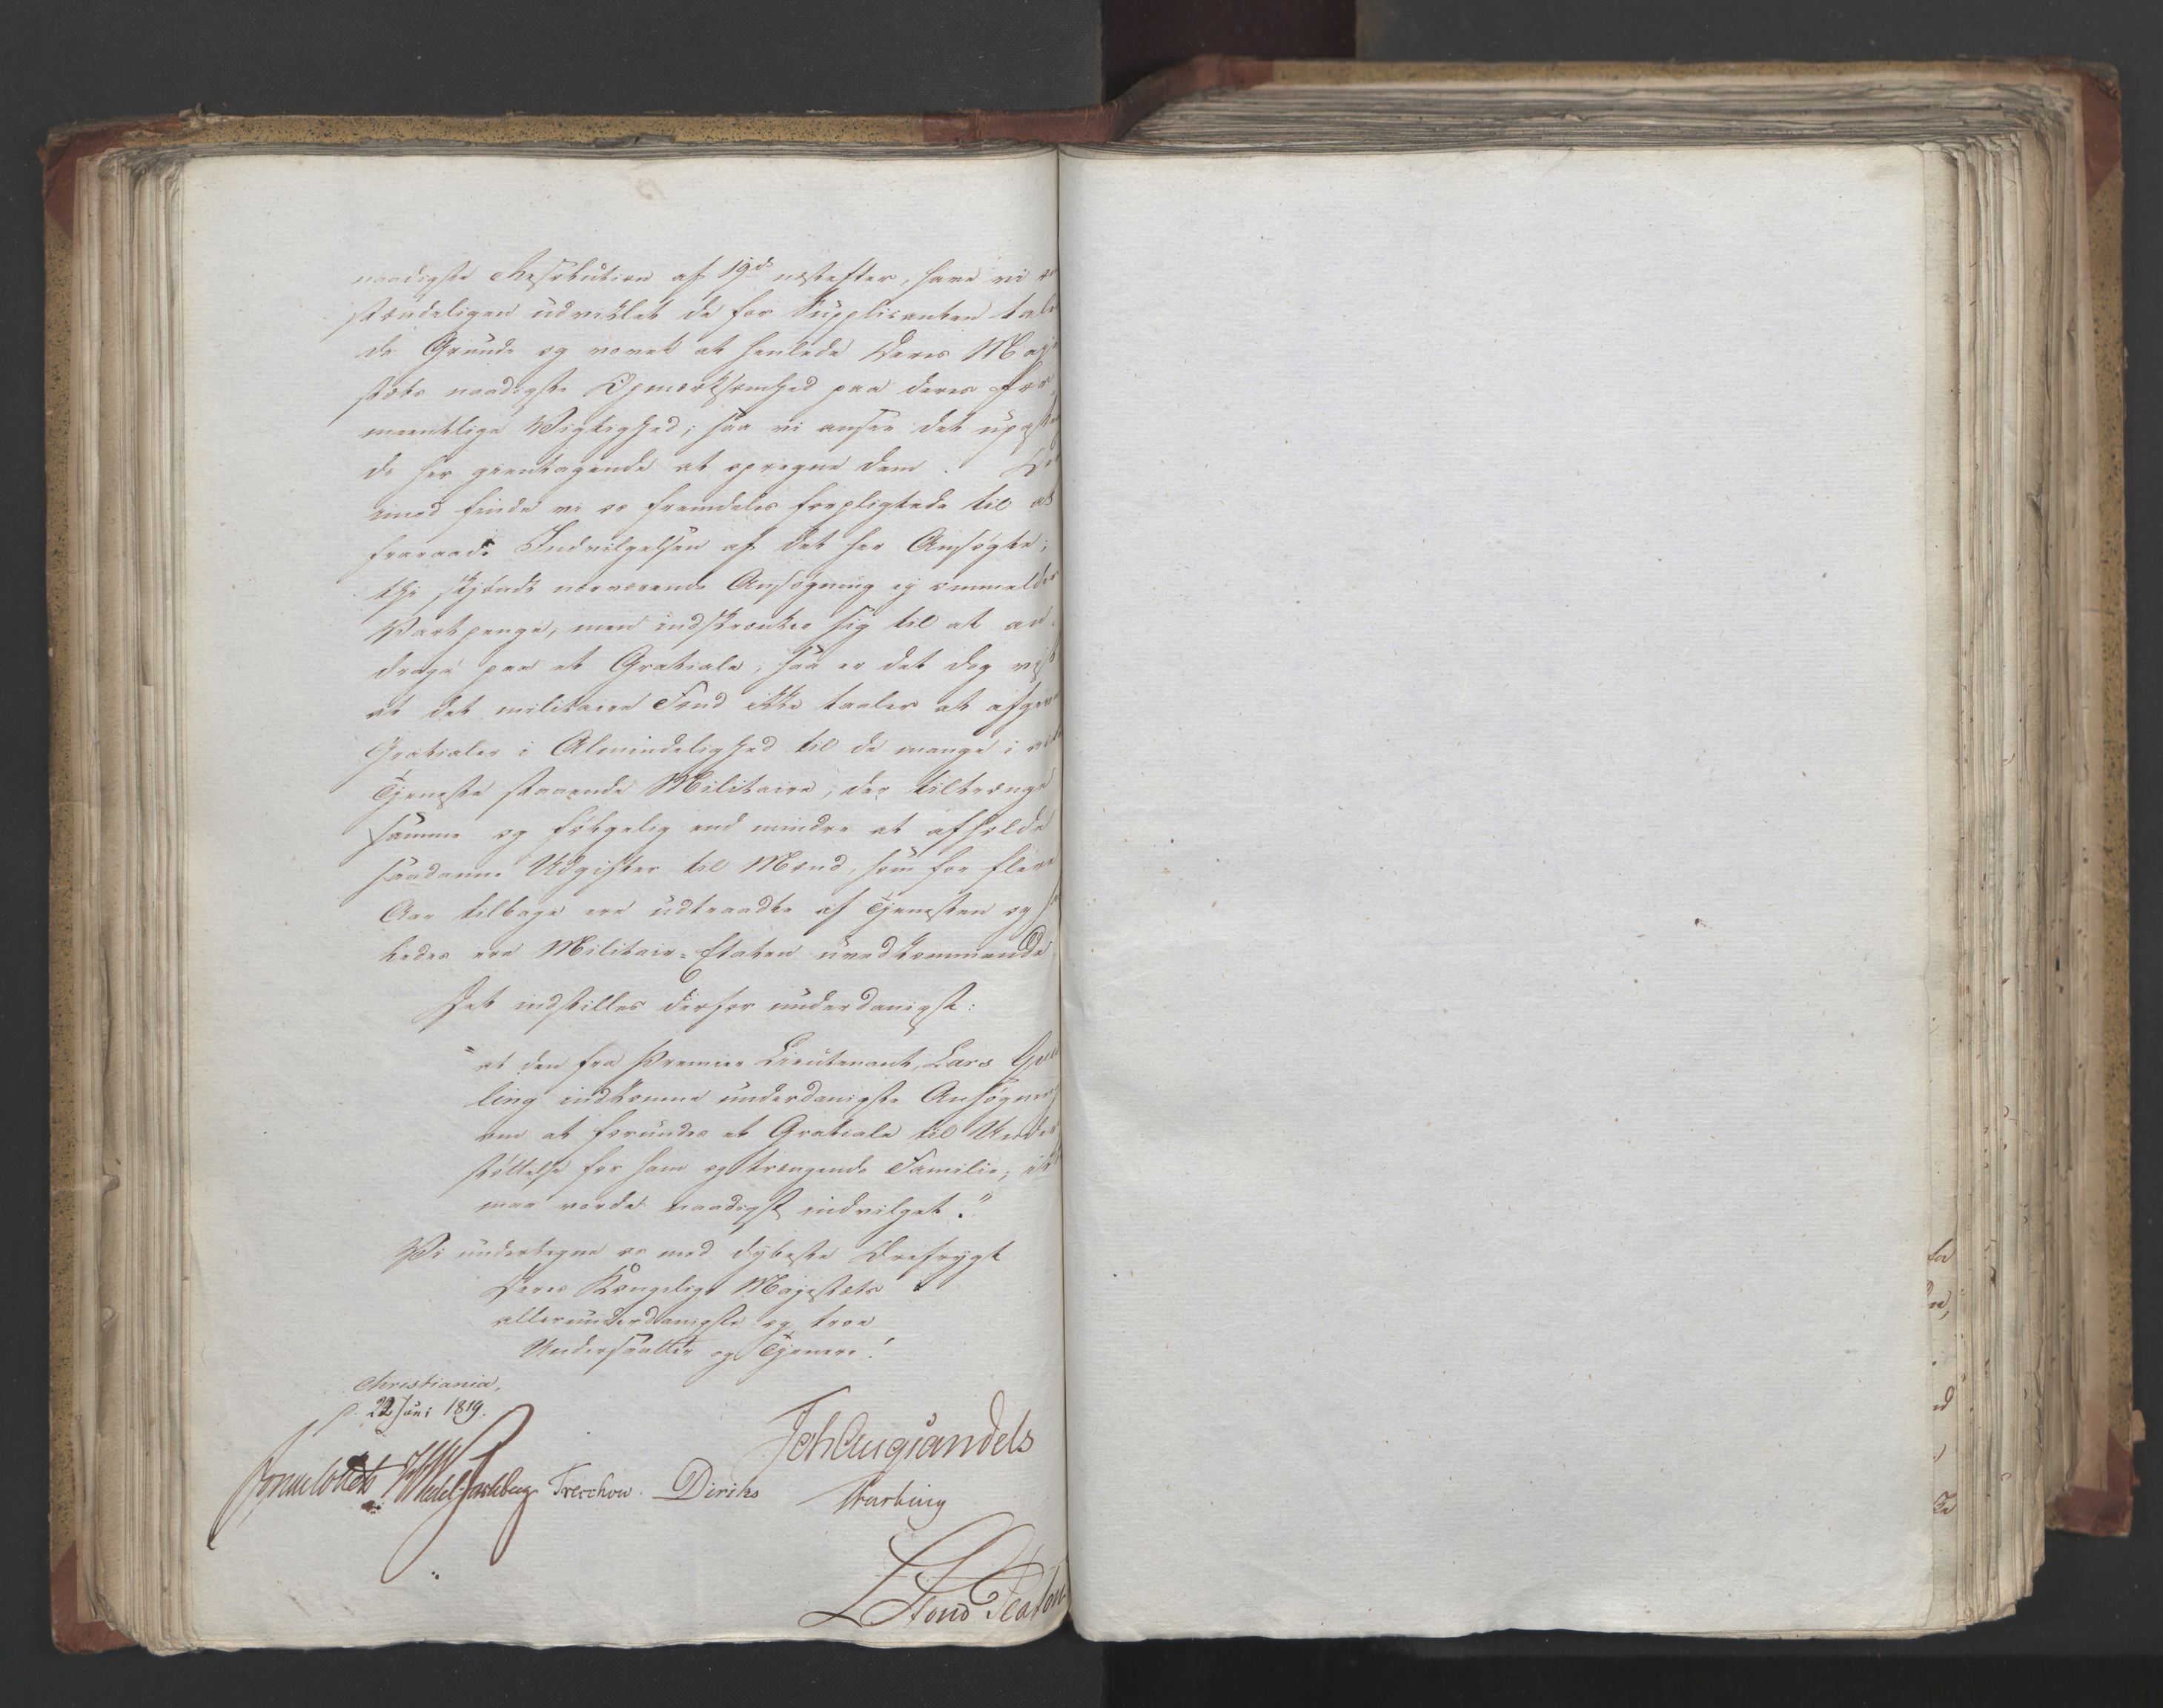 naadigste Resolution af 19de næstefter, have vi
stændeligen udviklet de for Supplicanten tale
de Grunde og vovet at henlede Deres Maje
stæts naadigste Opmærksomhed paa deres for
meentlige Vigtighed; saa vi ansee det
de her gientagende at opregne dem. Der
imod finde vi os fremdeles forpligtede til at
fraraade Indvilgelsen af det her Ansøgte;
thi skjøndt nærværende Ansøgning ej ommelder
Vartpenge, men indskrænker sig til at an
drage paa et Gratiale, saa er det dog vist
at det militaire Fond ikke taaler at afgive
Gratialer i Almindelighed til de mange i
Tjeneste staaende Militaire, der tiltrænge
samme og følgelig end mindre at afholde
saadanne Udgifter til Mænd, som for flere
Aar tilbage ere udtraadte af Tjenesten og
ledes ere Militair-Etaten uvedkommende
Det indstilles derfor underdanigst:
"at den fra Premier Lieutenant, Lars
ling indkomne underdanigste Ansøgning
om at forundes et Gratiale til Under
støttelse for ham og trængende Familie, ikke
maa vorde naadigst indvilget."
Vi undertegne os med dybeste Ærefrygt
Deres Kongelige Majestæts
allerunderdanigste og troe
Undersaatter og Tjenere!
Christiania,
d. 22 Juni 1819.
Joh Aug Sandels
Sommerhielm HWedel Jarlsberg Treschow. Diriks Krebs Motzfeldt